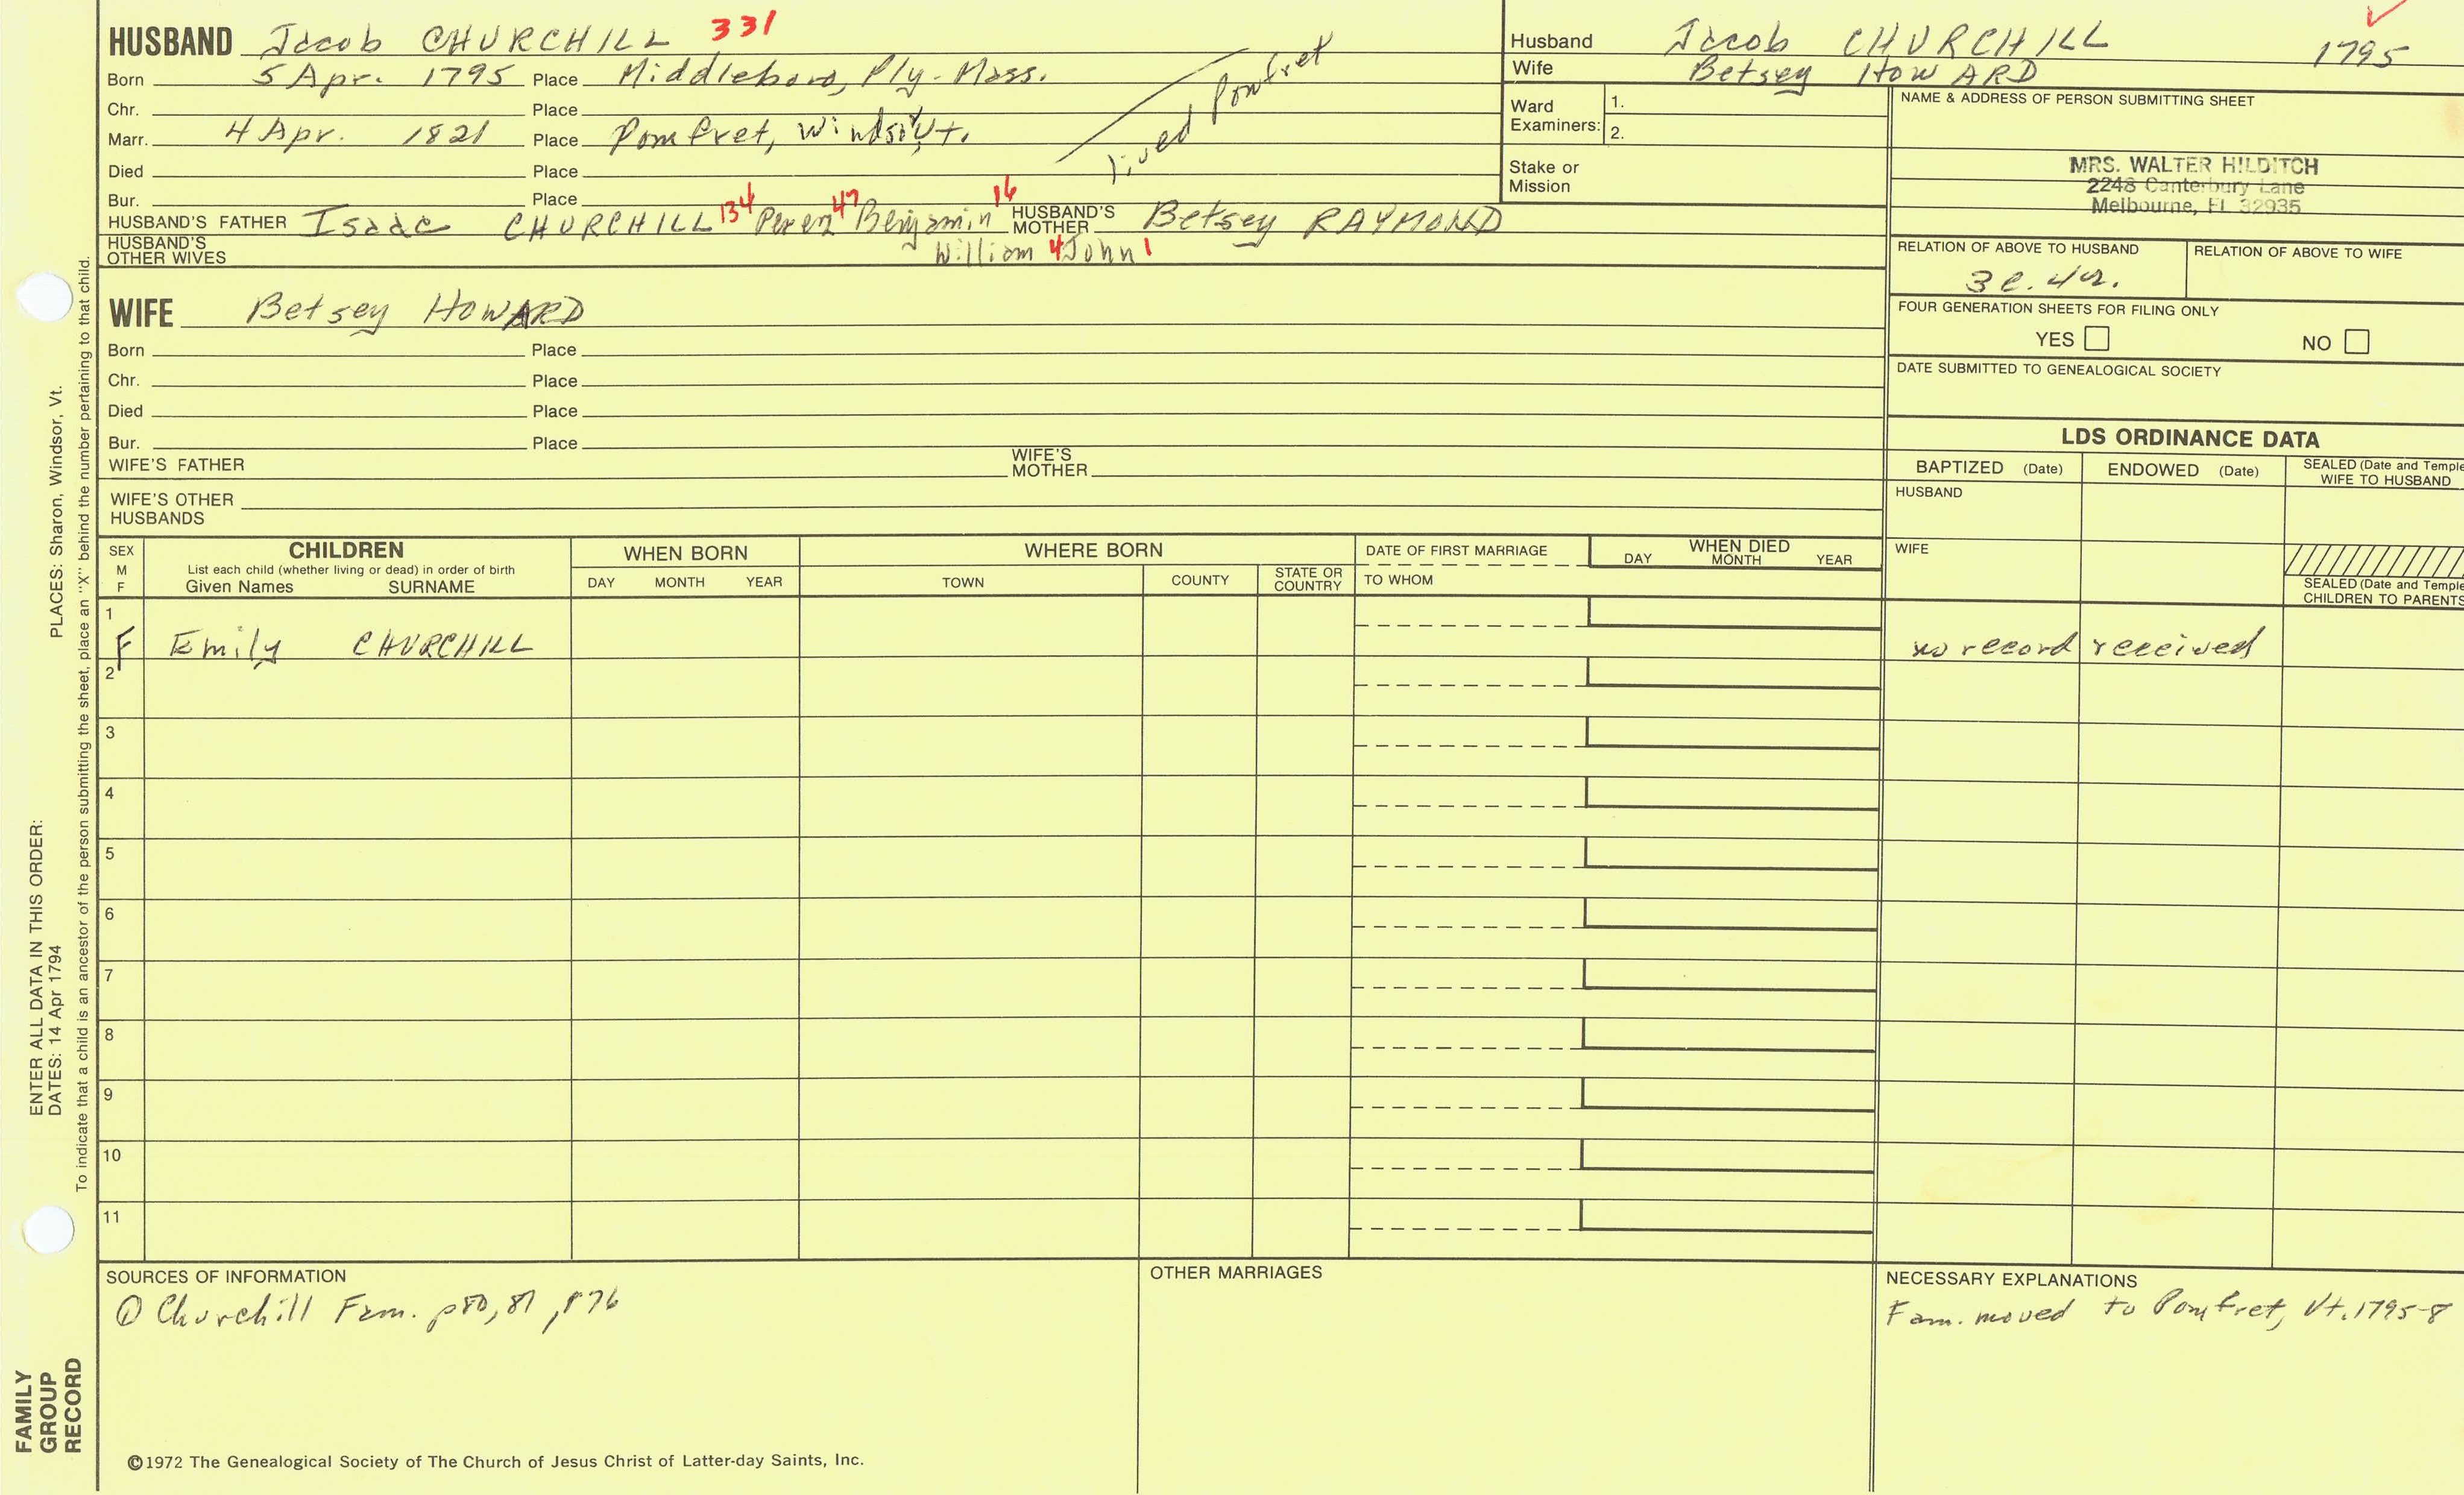 HUSBAND Jacob CHURCHILL 331
Born 5 Apr. 1795 Place Middleboro, Ply-Mass.
Chr. Place
Marr. 4 Apr. 1821 Place Pomfret, Windsor, Vt.
lived Pomfret
Died Place
Bur. Place
HUSBAND'S FATHER Isaac CHURCHILL 134 Perez 47 Benjamin 16 HUSBAND'S MOTHER Betsey RAYMOND
William 4 John 1
HUSBAND'S OTHER WIVES
Husband Jacob CHURCHILL 1795
Wife Betsey HOWARD
Ward Examiners: 1.
2.
Stake or Mission
NAME & ADDRESS OF PERSON SUBMITTING SHEET
MRS. WALTER HILDITCH
2248 Canterbury Lane
Melbourne, Fl 32935
RELATION OF ABOVE TO HUSBAND RELATION OF ABOVE TO WIFE
3c. 4r.
FOUR GENERATION SHEETS FOR FILING ONLY
YES NO
DATE SUBMITTED TO GENEALOGICAL SOCIETY
WIFE Betsey HOWARD
Born Place
Chr. Place
Died Place
Bur. Place
WIFE'S FATHER WIFE'S MOTHER
WIFE'S OTHER HUSBANDS
LDS ORDINANCE DATA
BAPTIZED (Date) ENDOWED (Date) SEALED (Date and Temple
WIFE TO HUSBAND
HUSBAND
WIFE
SEALED (Date and Temple
CHILDREN TO PARENTS
SEX
M
F
CHILDREN
List each child (whether living or dead) in order of birth
Given Names SURNAME
WHEN BORN
DAY MONTH YEAR
WHERE BORN
TOWN COUNTY STATE OR COUNTRY
DATE OF FIRST MARRIAGE
TO WHOM
WHEN DIED
DAY MONTH YEAR
1
F Emily CHURCHILL no record received
2
3
4
5
6
7
8
9
10
11
SOURCES OF INFORMATION
① Churchill Fam. p80, 81, 876
OTHER MARRIAGES
NECESSARY EXPLANATIONS
Fam. moved to Pomfret, Vt. 1795-8
©1972 The Genealogical Society of The Church of Jesus Christ of Latter-day Saints, Inc.
FAMILY
GROUP
RECORD
ENTER ALL DATA IN THIS ORDER:
DATES: 14 Apr 1794 PLACES: Sharon, Windsor, Vt.
To indicate that a child is an ancestor of the person submitting the sheet, place an "X" behind the number pertaining to that child.